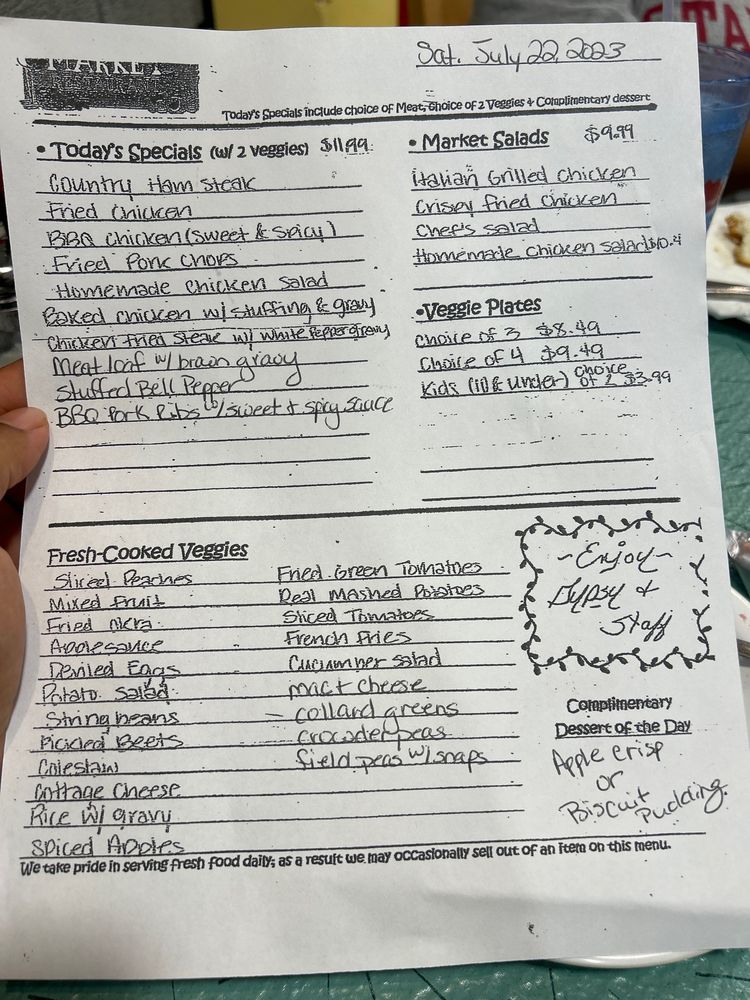 MARKET
Sat. July 22, 2023
Today's Specials include choice of Meat, Choice of 2 Veggies & Complimentary dessert
• Today's Specials (w/ 2 veggies) $11.99
Country Ham Steak
Fried Chicken
BBQ Chicken (Sweet & Spicy)
Fried Pork Chops
Homemade Chicken Salad
Baked Chicken w/ stuffing & gravy
Chicken Fried Steak w/ White Pepper gravy
Meatloaf w/ brown gravy
Stuffed Bell Pepper
BBQ Pork Ribs w/ sweet & spicy sauce
• Market Salads $9.99
Italian Grilled Chicken
Crispy Fried Chicken
Chef's Salad
Homemade Chicken Salad $10.4
• Veggie Plates
Choice of 3 $8.49
Choice of 4 $9.49
Kids (10 & Under) choice of 2 $3.99
Fresh-Cooked Veggies
Sliced Peaches
Mixed Fruit
Fried Okra
Applesauce
Deviled Eggs
Potato Salad
String beans
Pickled Beets
Coleslaw
Cottage Cheese
Rice w/ gravy
Spiced Apples
Fried Green Tomatoes
Real Mashed Potatoes
Sliced Tomatoes
French Fries
Cucumber Salad
mac + cheese
collard greens
crowder peas
field peas w/ snaps
~Enjoy~
Gypsy &
Staff
Complimentary
Dessert of the Day
Apple crisp
or
Biscuit Pudding
We take pride in serving fresh food daily; as a result we may occasionally sell out of an item on this menu.